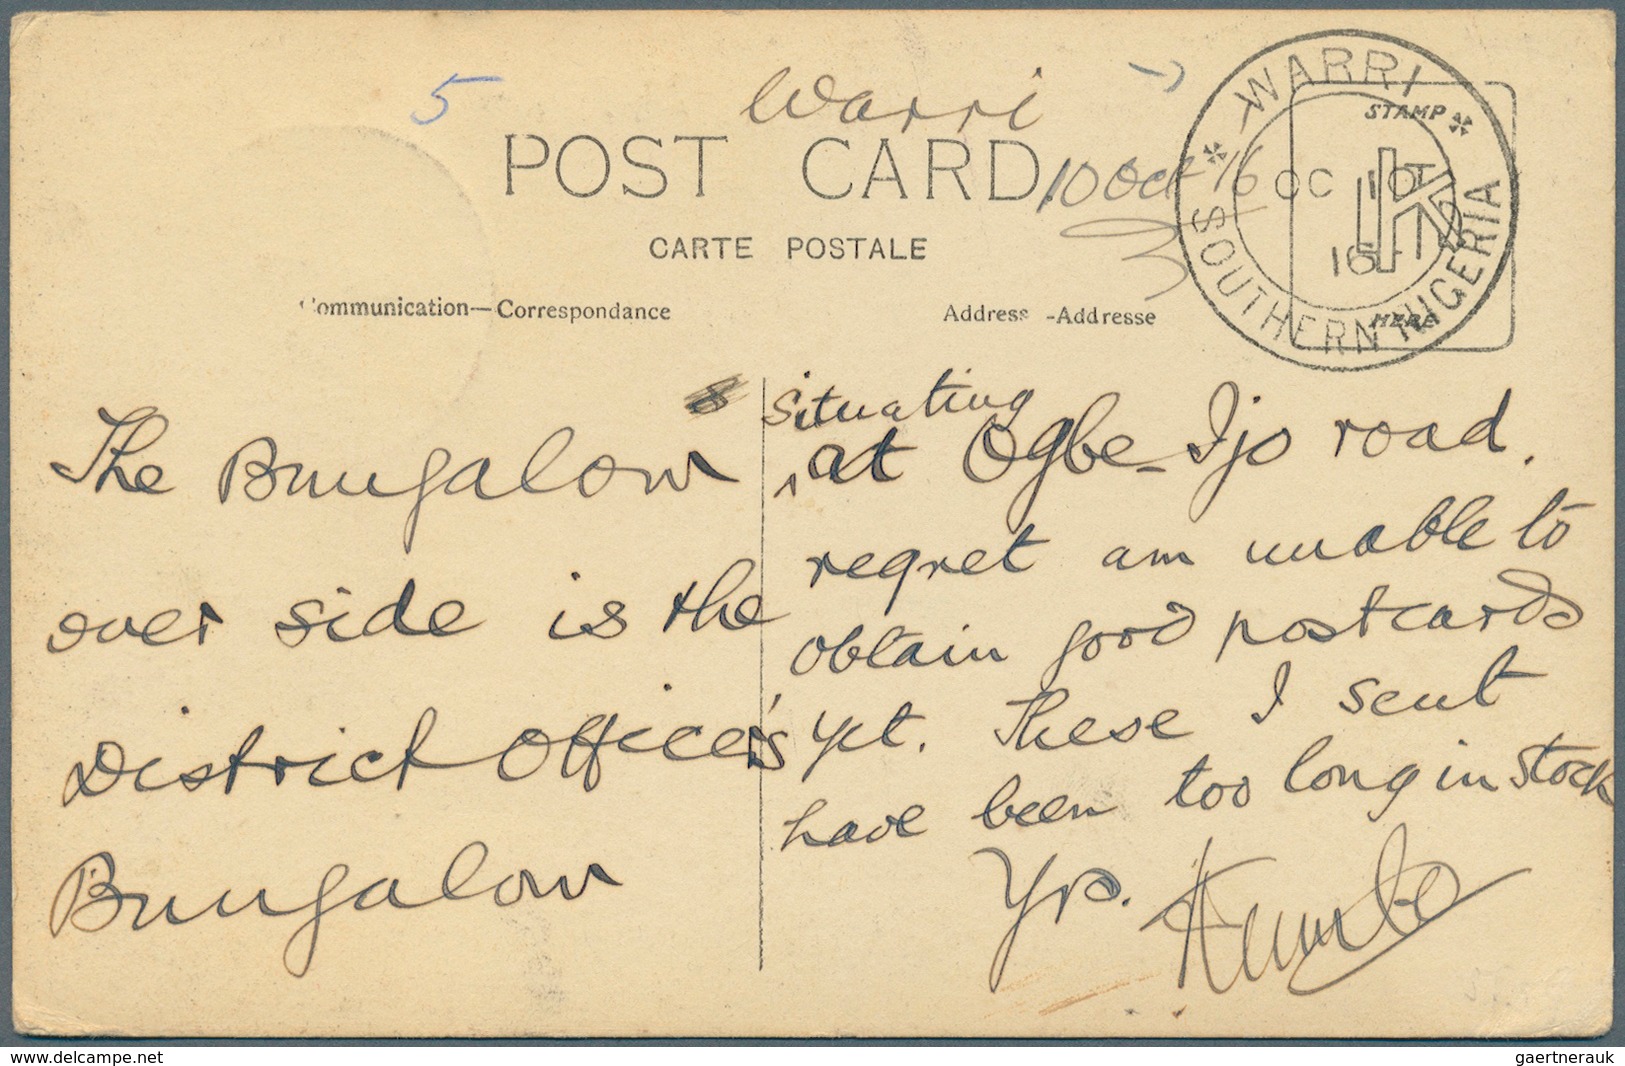 5
Warri
POST CARD
10 Oct 16
CARTE POSTALE
WARRI
SOUTHERN NIGERIA
OC 10
16
STAMP
HERE
ommunication—Correspondance
Address -Addresse
The Bungalow
over side is the
District Officer's
Bungalow
situating
at Ogbe-Ijo road.
regret am unable to
obtain good postcards
yet. These I sent
have been too long in stock
Yrs.
www.delcampe.net
gaertnerauk